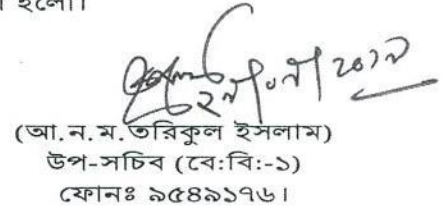 হলো।
(আ.ন.ম.তরিকুল ইসলাম)
উপ-সচিব (বে:বি:-১)
ফোনঃ ৯৫৪৯১৭৬।